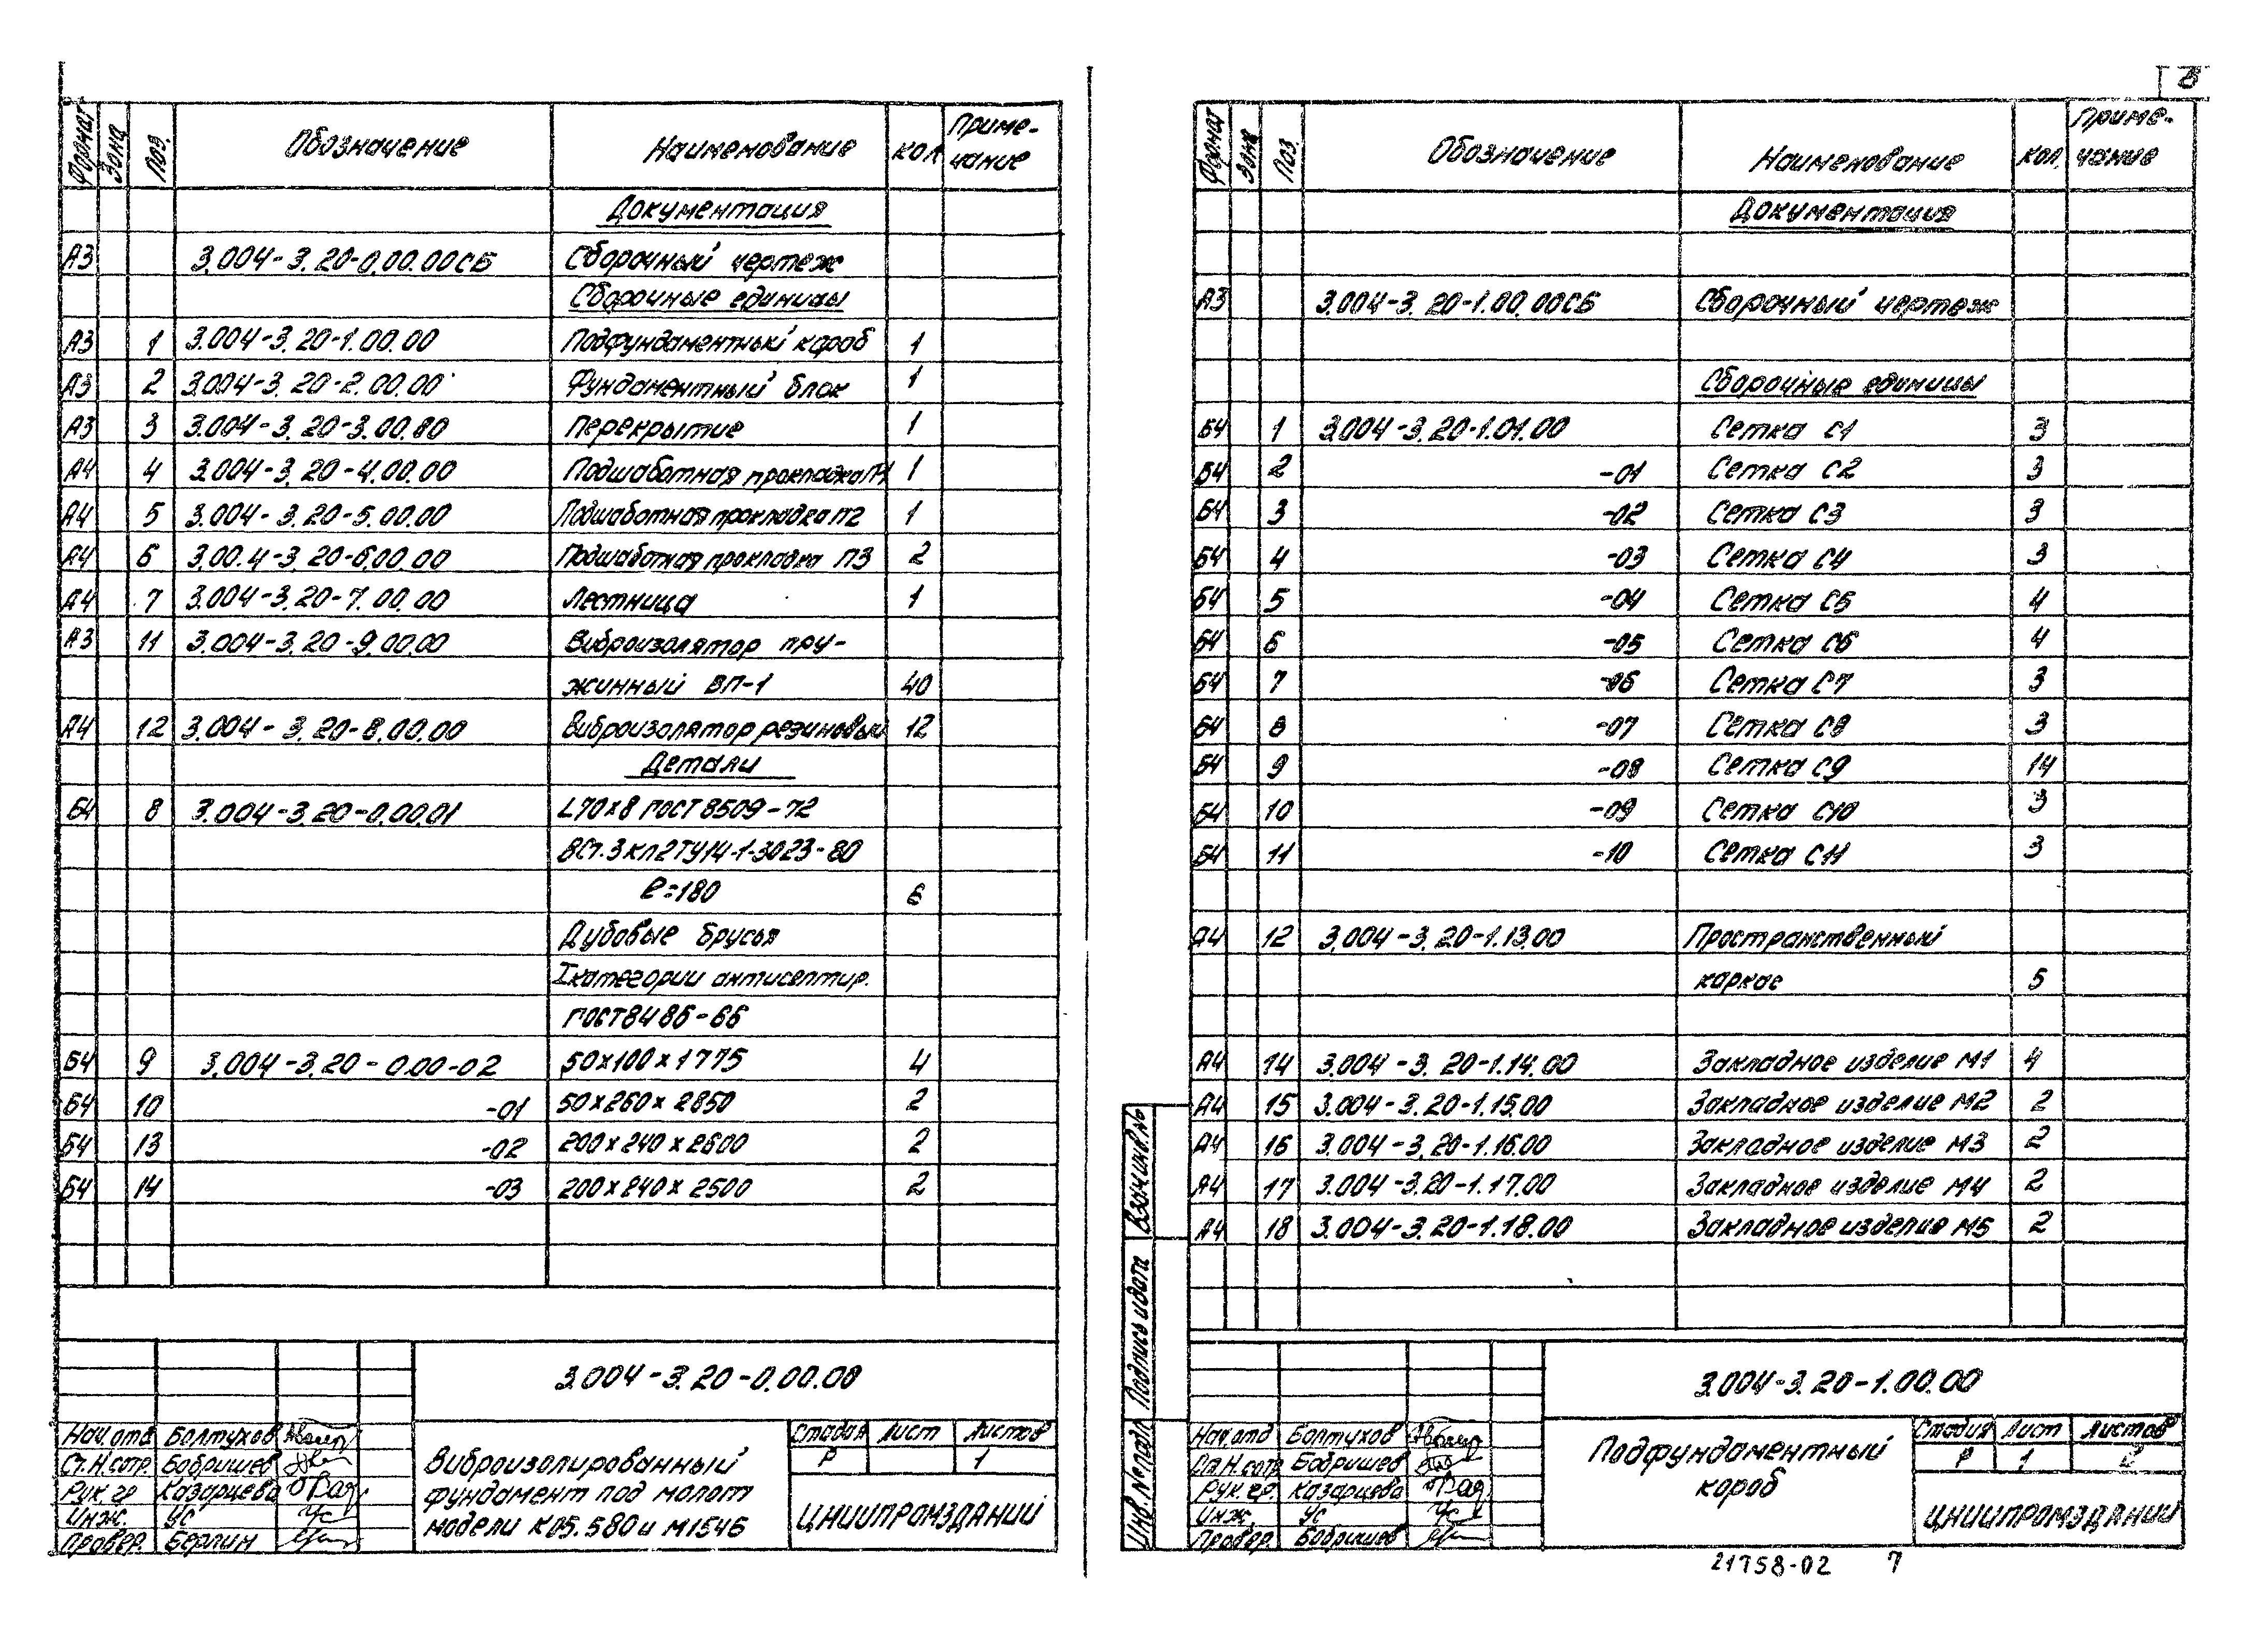 Формат Зона Поз. Обозначение Наименование Кол. Приме-
чание
Документация
А3 3.004-3.20-0.00.00СБ Сборочный чертеж
Сборочные единицы
А3 1 3.004-3.20-1.00.00 Подфундаментный короб 1
А3 2 3.004-3.20-2.00.00 Фундаментный блок 1
А3 3 3.004-3.20-3.00.00 Перекрытие 1
А4 4 3.004-3.20-4.00.00 Подшаботная прокладка П1 1
А4 5 3.004-3.20-5.00.00 Подшаботная прокладка П2 1
А4 6 3.00.4-3.20-6.00.00 Подшаботная прокладка П3 2
А4 7 3.004-3.20-7.00.00 Лестница 1
А3 11 3.004-3.20-9.00.00 Виброизолятор пру-
жинный ВП-1 40
А4 12 3.004-3.20-8.00.00 Виброизолятор резиновый 12
Детали
Б4 8 3.004-3.20-0.00.01 L70х8 ГОСТ 8509-72
ВСт.3кп2ТУ14-1-3023-80
ℓ=180 6
Дубовые брусья
I категории антисептир.
ГОСТ8486-66
Б4 9 3.004-3.20-0.00-02 50х100х1775 4
Б4 10 -01 50х260х2850 2
Б4 13 -02 200х240х2600 2
Б4 14 -03 200х240х2500 2
3.004-3.20-0.00.00
Нач.отд Болтухов
Ст.Н.сотр. Бобришев
Рук.гр Казарцева
Инж. Ус
Провер. Берлин
Виброизолированный
фундамент под молот
модели К05.580 и М1545
Стадия Лист Листов
Р 1
ЦНИИПРОМЗДАНИЙ
8
Формат Зона Поз. Обозначение Наименование Кол. Приме-
чание
Документация
А3 3.004-3.20-1.00.00СБ Сборочный чертеж
Сборочные единицы
Б4 1 3.004-3.20-1.01.00 Сетка С1 3
Б4 2 -01 Сетка С2 3
Б4 3 -02 Сетка С3 3
Б4 4 -03 Сетка С4 3
Б4 5 -04 Сетка С5 4
Б4 6 -05 Сетка С6 4
Б4 7 -06 Сетка С7 3
Б4 8 -07 Сетка С8 3
Б4 9 -08 Сетка С9 14
Б4 10 -09 Сетка С10 3
Б4 11 -10 Сетка С11 3
А4 12 3.004-3.20-1.13.00 Пространственный
каркас 5
А4 14 3.004-3.20-1.14.00 Закладное изделие М1 4
А4 15 3.004-3.20-1.15.00 Закладное изделие М2 2
А4 16 3.004-3.20-1.16.00 Закладное изделие М3 2
А4 17 3.004-3.20-1.17.00 Закладное изделие М4 2
А4 18 3.004-3.20-1.18.00 Закладное изделие М5 2
Взам.инв.№
Подпись и дата
Инв.№подл
3.004-3.20-1.00.00
Нач.отд Болтухов
Н.сотр Бобришев
Рук.гр. Казарцева
Инж. Ус
Провер. Бобришев
Подфундаментный
короб
Стадия Лист Листов
Р 1 2
ЦНИИПРОМЗДАНИЙ
21758-02 7